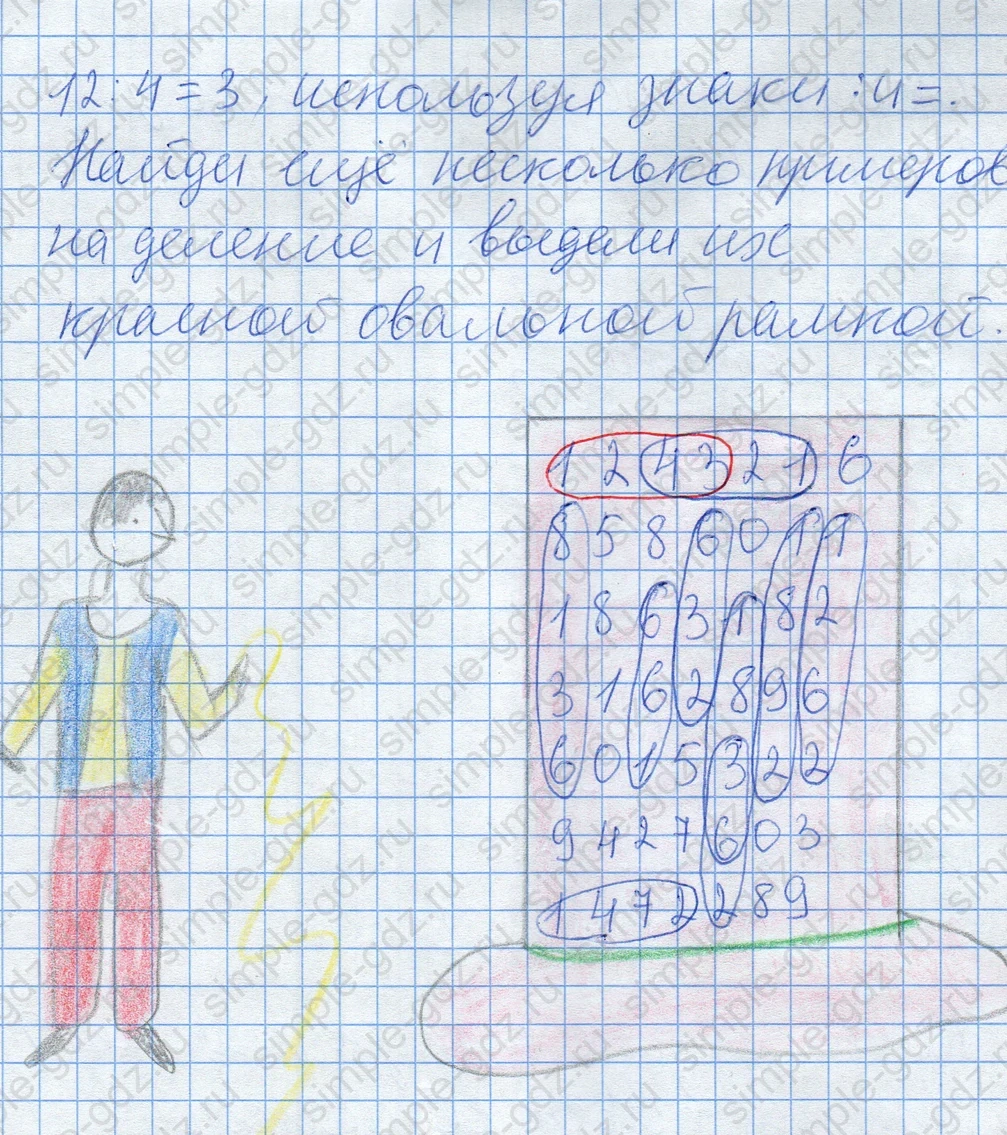 12:4=3, используя знаки : и =.
Найди ещё несколько примеров
на деление и выдели их
красной овальной рамкой.
1 2 4 3 2 1 6
8 5 8 6 0 1 1
1 8 6 3 1 8 2
3 1 6 2 8 9 6
6 0 1 5 3 2 2
9 4 2 7 6 0 3
1 4 7 2 2 8 9
simple-gdz.ru